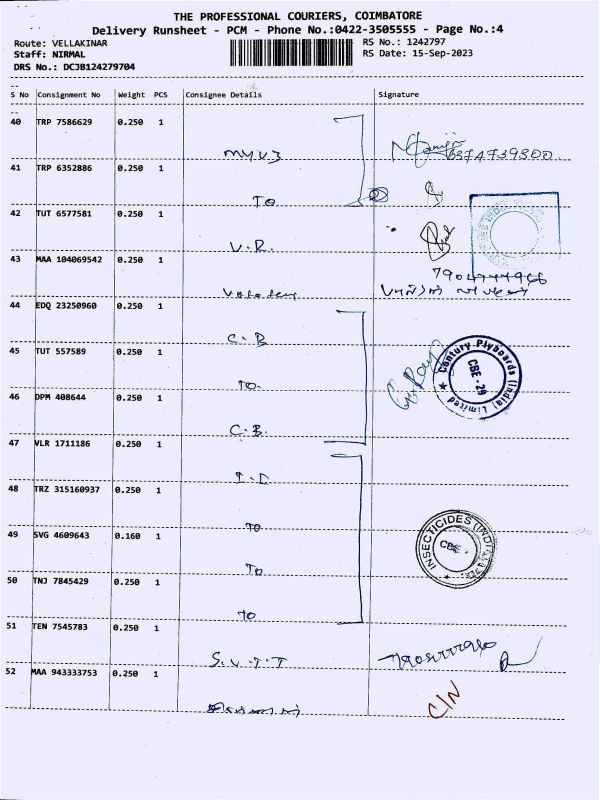 THE PROFESSIONAL COURIERS, COIMBATORE
Delivery Runsheet - PCM - Phone No.:0422-3505555 - Page No.:4
Route: VELLAKINAR RS No.: 1242797
Staff: NIRMAL RS Date: 15-Sep-2023
DRS No.: DCJB124279704
S No Consignment No Weight PCS Consignee Details Signature
40 TRP 7586629 0.250 1
41 TRP 6352886 0.250 1
TO
42 TUT 6577581 0.250 1
V.R.
43 MAA 104069542 0.250 1
44 EDQ 23250960 0.250 1
C.B
45 TUT 557589 0.250 1
TO.
46 DPM 408644 0.250 1
C.B.
Century Plyboards (India) Limited
CBE - 29
47 VLR 1711186 0.250 1
48 TRZ 315160937 0.250 1
TO
49 SVG 4609643 0.160 1
TO
INSECTICIDES (INDIA)
CBE
50 TNJ 7845429 0.250 1
TO
51 TEN 7545783 0.250 1
52 MAA 943333753 0.250 1
C/N